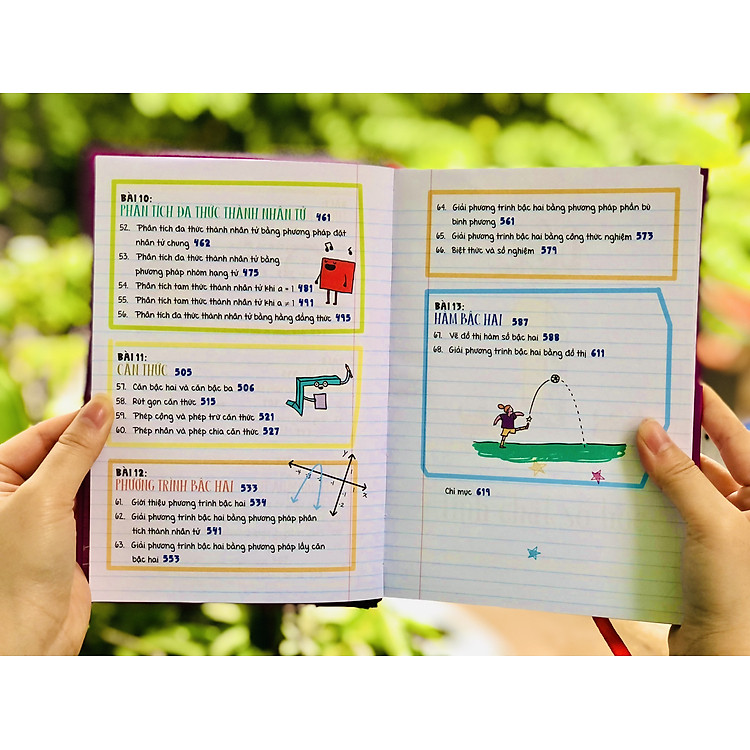 BÀI 10:
PHÂN TÍCH ĐA THỨC THÀNH NHÂN TỬ 461
52. Phân tích đa thức thành nhân tử bằng phương pháp đặt
nhân tử chung 462
53. Phân tích đa thức thành nhân tử bằng
phương pháp nhóm hạng tử 475
54. Phân tích tam thức thành nhân tử khi a = 1 481
55. Phân tích tam thức thành nhân tử khi a ≠ 1 491
56. Phân tích đa thức thành nhân tử bằng hằng đẳng thức 495
BÀI 11:
CĂN THỨC 505
57. Căn bậc hai và căn bậc ba 506
58. Rút gọn căn thức 515
59. Phép cộng và phép trừ căn thức 521
60. Phép nhân và phép chia căn thức 527
BÀI 12:
PHƯƠNG TRÌNH BẬC HAI 533
61. Giới thiệu phương trình bậc hai 534
62. Giải phương trình bậc hai bằng phương pháp phân
tích thành nhân tử 541
63. Giải phương trình bậc hai bằng phương pháp lấy căn
bậc hai 553
y
x
64. Giải phương trình bậc hai bằng phương pháp phần bù
bình phương 561
65. Giải phương trình bậc hai bằng công thức nghiệm 573
66. Biệt thức và số nghiệm 579
BÀI 13:
HÀM BẬC HAI 587
67. Vẽ đồ thị hàm số bậc hai 588
68. Giải phương trình bậc hai bằng đồ thị 611
Chỉ mục 619